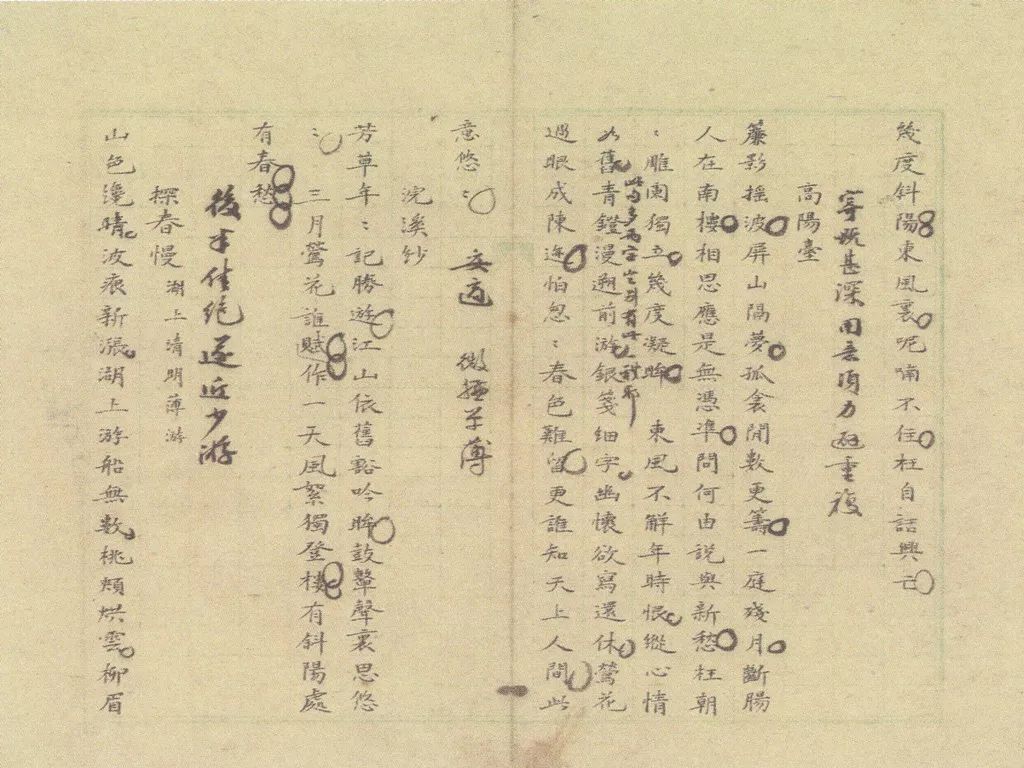 幾度斜陽東風裏呢喃不住枉自話興亡
寄託甚深用意須力避重複
高陽臺
簾影搖波屏山隔夢孤衾閒數更籌一庭殘月斷腸
人在南樓相思應是無憑準問何由說與新愁枉朝
〻雕闌獨立幾度凝眸　東風不解年時恨縱心情
此句多兩字
如舊青鐙漫遡前游銀箋细字幽懷欲寫還休鶯花
過眼成陳迹怕怱〻春色難留更誰知天上人間此
意悠〻
妥適　微攝平薄
浣溪紗
芳草年〻記勝遊江山依舊豁吟眸鼓鼙聲裏思悠
〻　三月鶯花誰賦作一天風絮獨登樓有斜陽處
有春愁
後半佳絕遂近少游
探春慢　湖上清明薄游
山色邊晴波痕新漲湖上游船無數桃頰烘雲柳眉